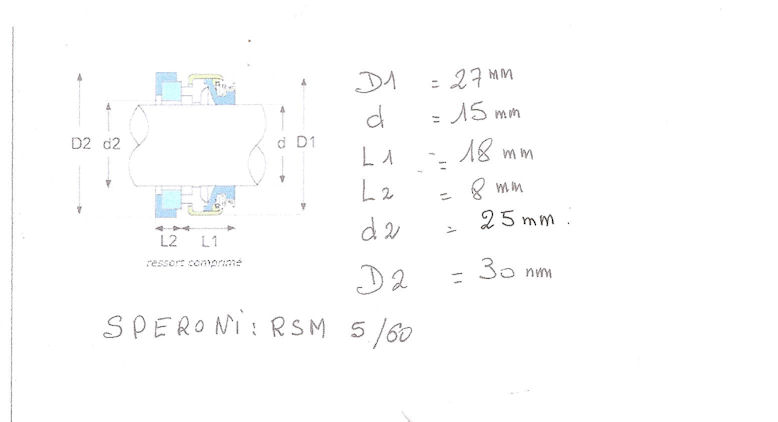 D1 = 27 mm
d = 15 mm
L1 = 18 mm
L2 = 8 mm
d2 = 25 mm.
D2 = 30 mm
D2 d2 d D1
L2 L1
ressort comprimé
SPERONi: RSM 5/60